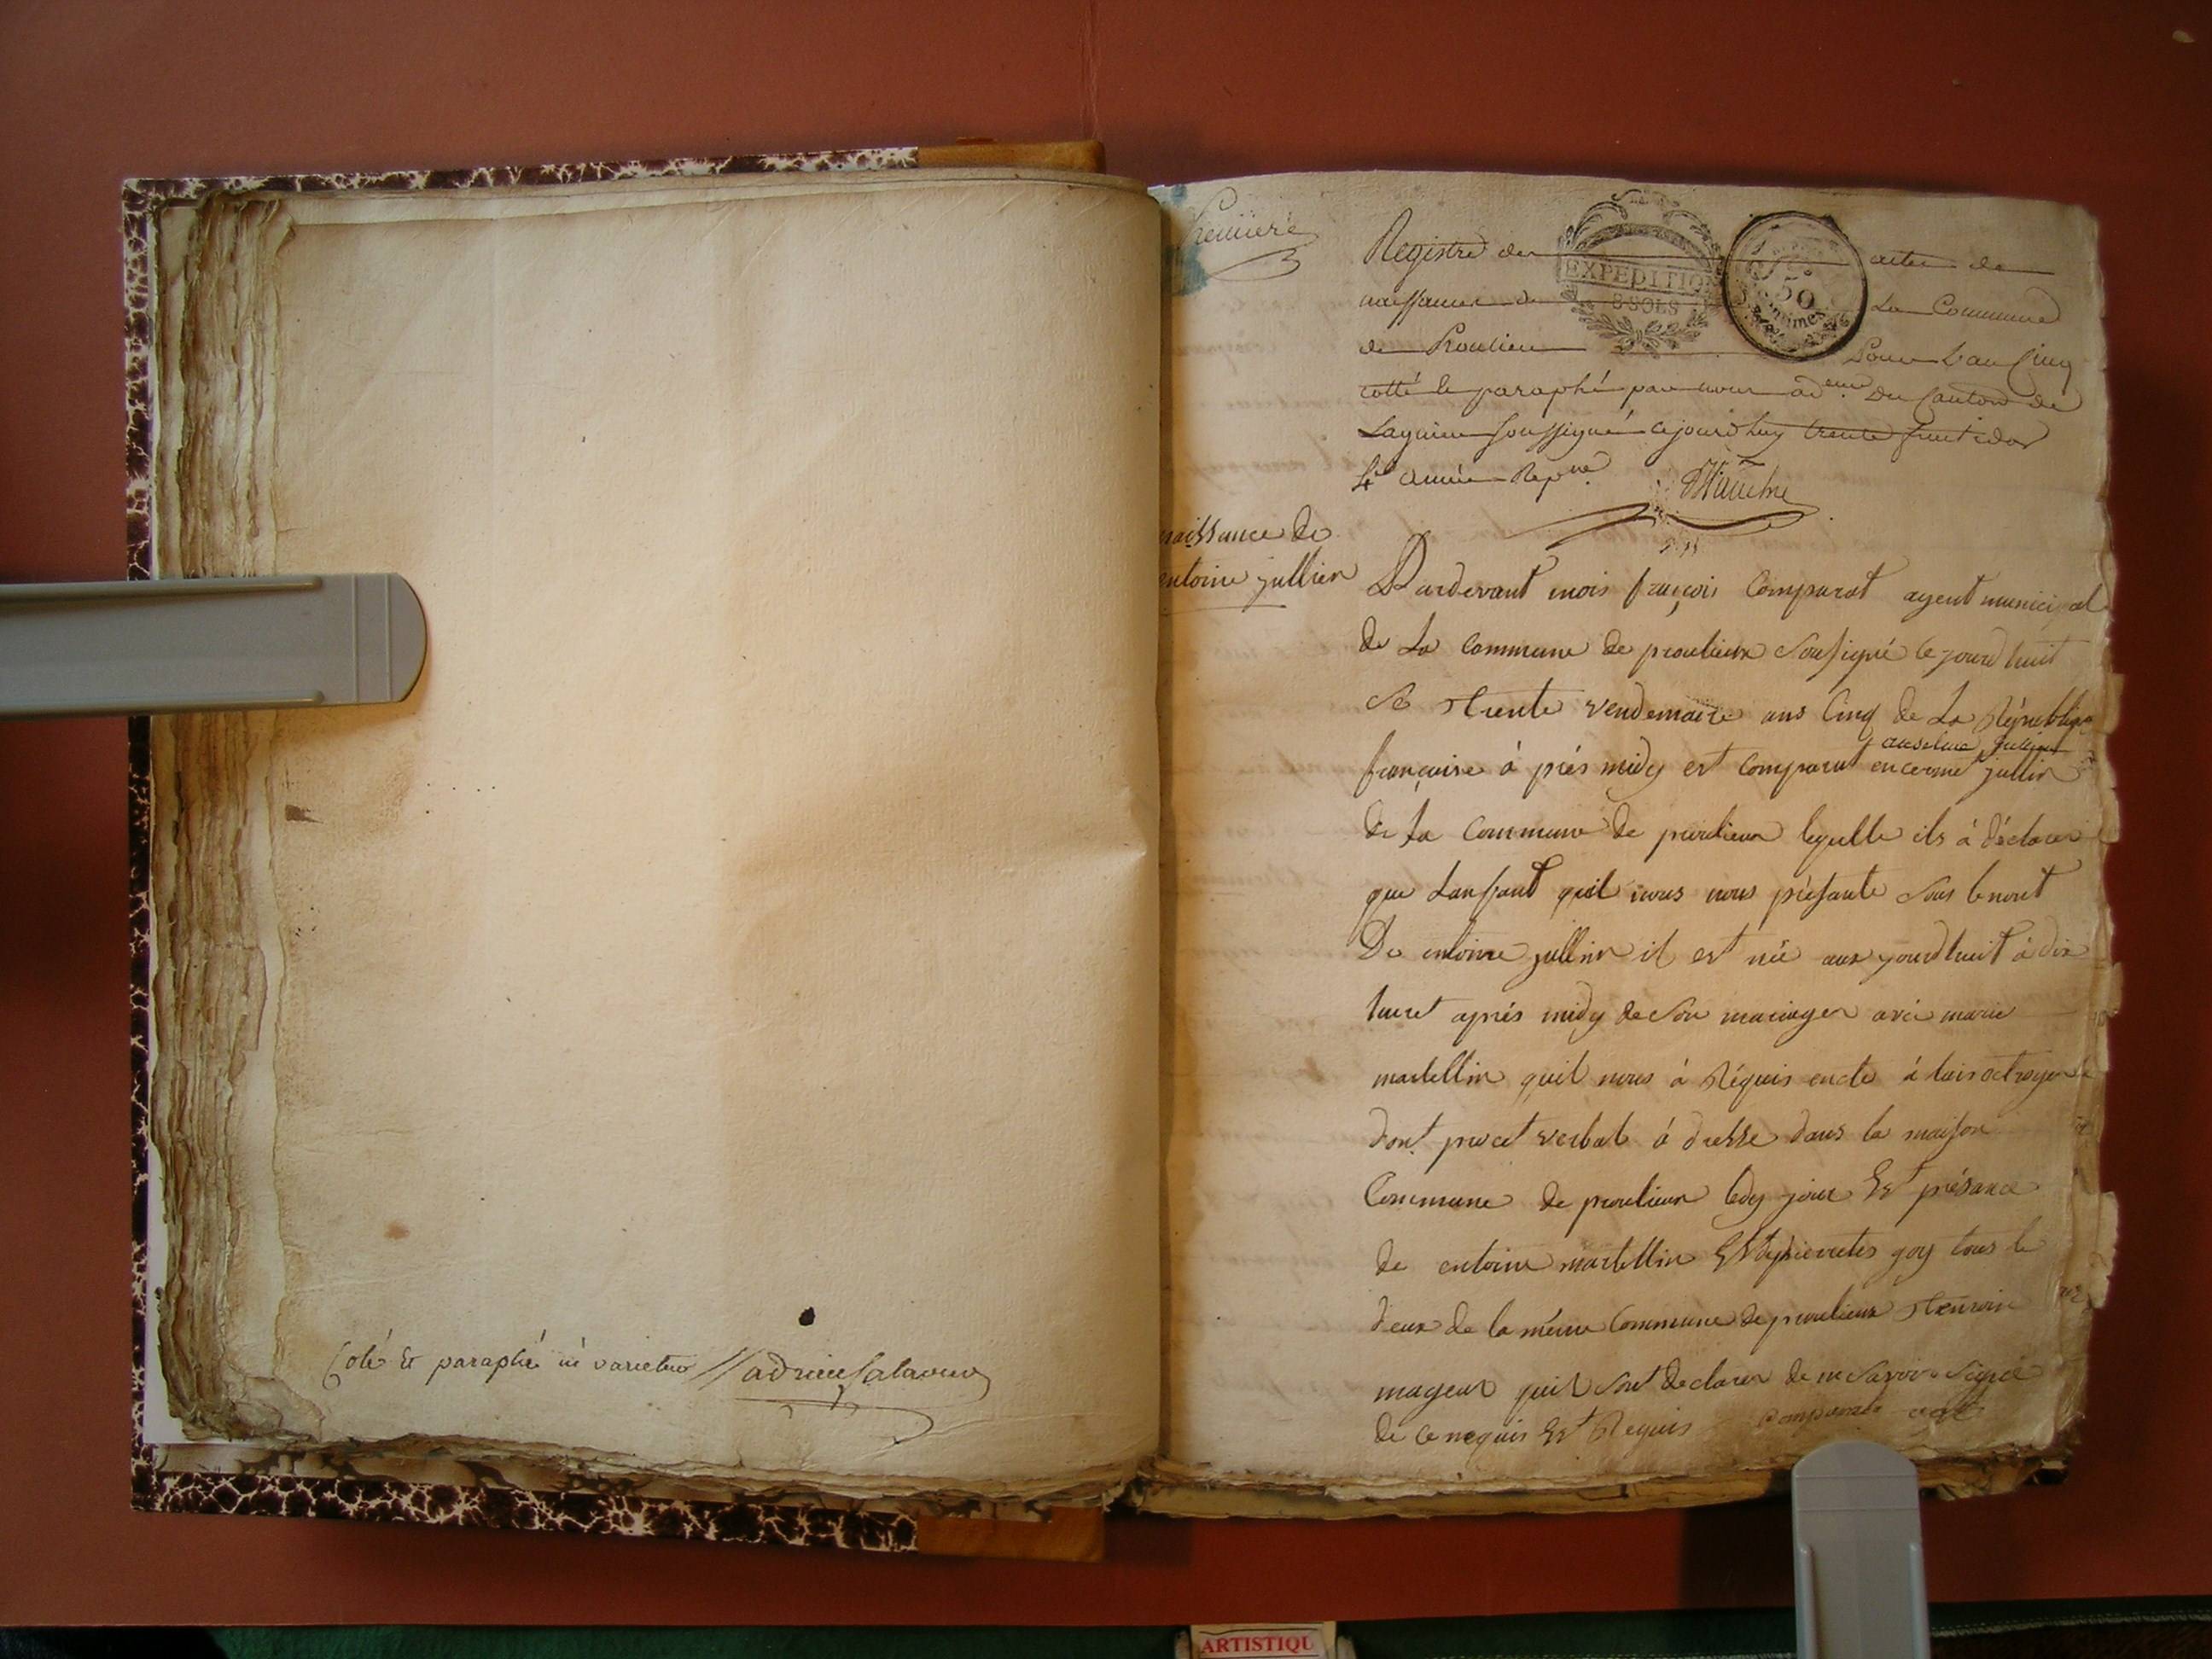 Coté et paraphé ne varietur
Premiere
Registre des actes de
naissances de La Commune
EXPEDITIO
8 SOLS
50
centimes
de Proulieu Pour L'an Cinq
cotté le paraphé par nous adeur du Canton de
Lagnieu soussigné cejourdhuy trente fructidor
4e année Repne
naissance de
entoine jullien
Pardevant mois françois Comparat agent municipal
de La commune de proulieux Sousigné ce jourd huit
Se trente vendemaire ans Cinq de La République
anselme Jullien
françaisse à prés midy est Comparut encerme jullin
de La Commune de proulieux lequelle ils à déclarer
que Lanfant quil nous nous présante Sous le nont
De entoine jullien il est née aux jourdhuit à dix
hueret aprés midy de Son mariager avec marie
martellin quil nous à Réquis encte à lois octroyer
dont procet verbal à dresse dans la maison
Commune de proulieux ledy jour Est présance
de entoine martellin Est goy tous le
deux de la même Commune de proulieux temoin
mageur quil Sont declarer de ne Savoir Signé
de ce nequis Est Requis Comparat agt
ARTISTIQU